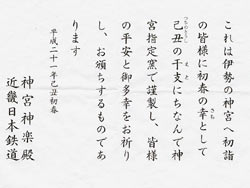 これは伊勢の神宮へ初詣
の皆様に初春の幸として
己丑の干支にちなんで神
宮指定窯で謹製し、皆様
の平安と御多幸をお祈り
し、お頒ちするものであ
ります
平成二十一年己丑初春
神宮神楽殿
近畿日本鉄道